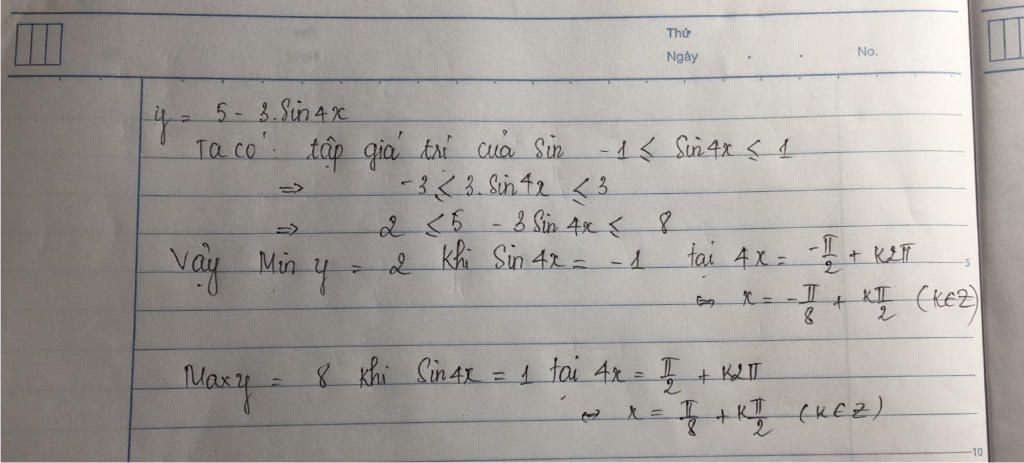 Thứ
Ngày . . No.
y = 5 - 3.Sin4x
Ta có : tập giá trị của Sin -1 ≤ Sin4x ≤ 1
⇒ -3 ≤ 3.Sin4x ≤ 3
⇒ 2 ≤ 5 - 3Sin4x ≤ 8
Vậy Min y = 2 khi Sin4x = -1 tại 4x = -π/2 + K2π
5
⇔ x = -π/8 + Kπ/2 (K∈Z)
Max y = 8 khi Sin4x = 1 tại 4x = π/2 + K2π
⇔ x = π/8 + Kπ/2 (K∈Z)
10